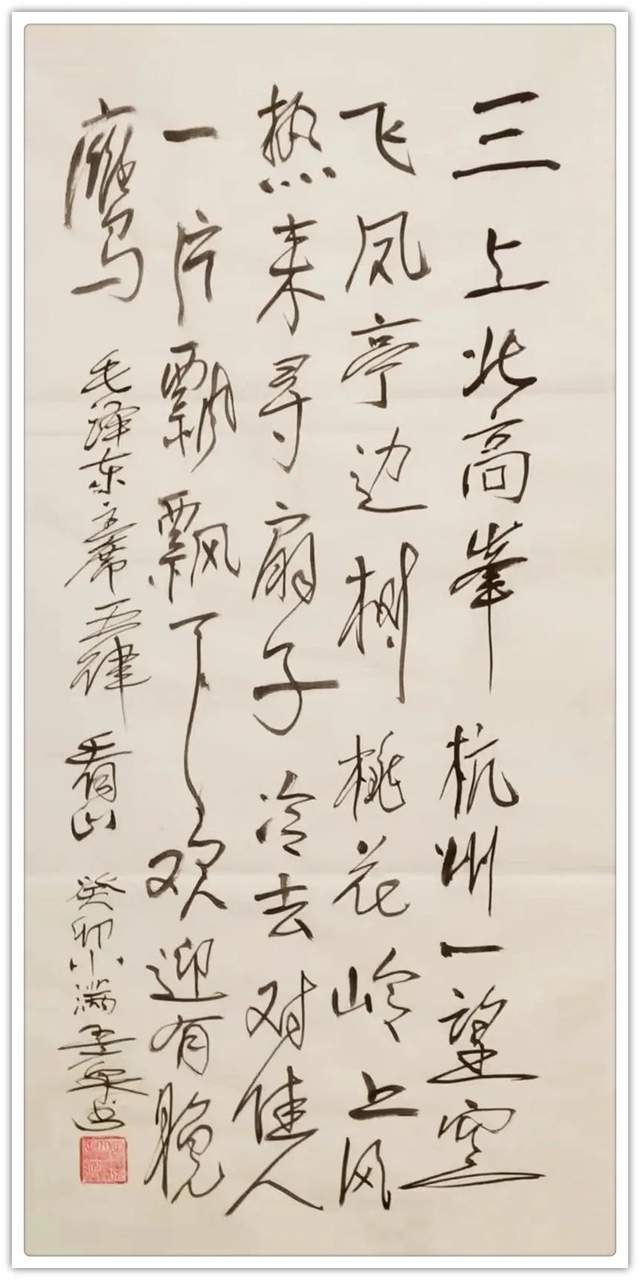 三上北高峯杭州一望空
飞凤亭边树桃花岭上风
热来寻扇子冷去对佳人
一片飘飘下欢迎有晚
鹰 毛泽东主席五律 看山 癸卯小满